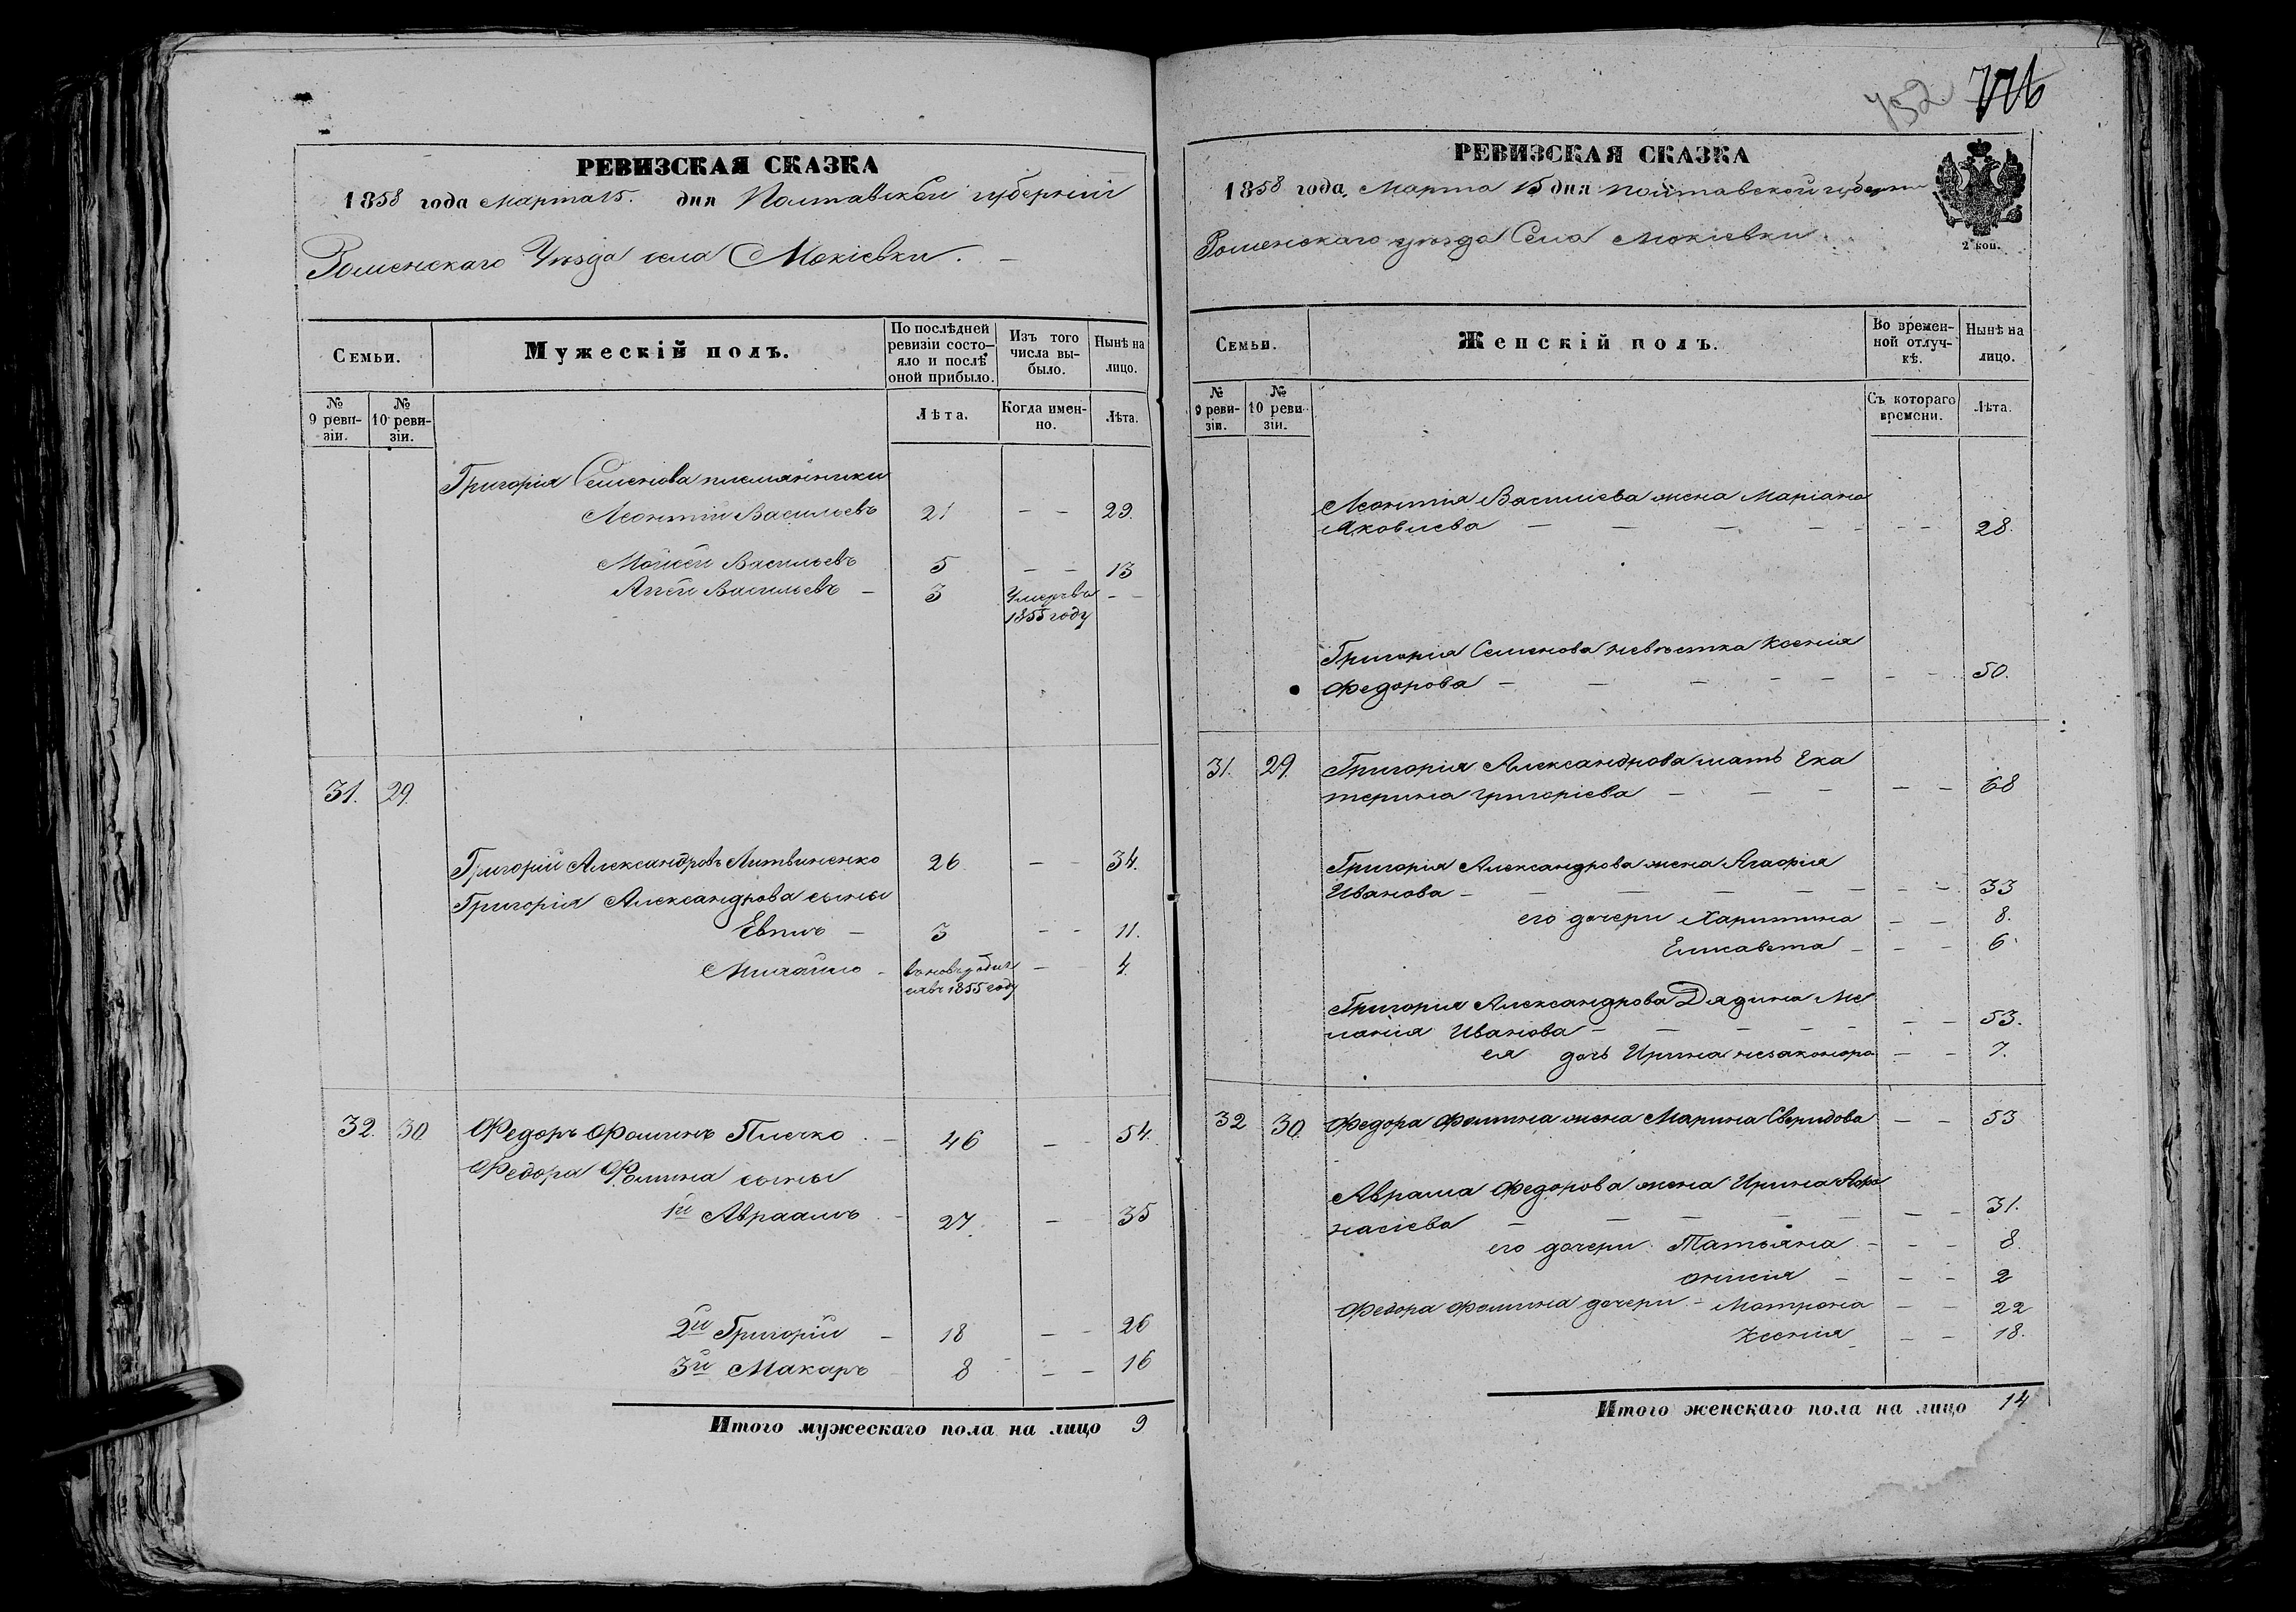 РЕВИЗСКАЯ СКАЗКА
1858 года Марта 15. дня Полтавской губерніи
Роменскаго Уѣзда села Мокіевки. —
Семьи.
Мужескій полъ.
По послѣдней ревизіи состояло и послѣ оной прибыло.
Изъ того числа выбыло.
Нынѣ на лицо.
№ 9 ревизіи.
№ 10 ревизіи.
Лѣта.
Когда именно.
Лѣта.
Григорія Семенова племянники
Леонтій Васильевъ 21 — — 29.
Мойсей Васильевъ 5 — — 13
Васильевъ — 3 Умеръ въ — —
1855 году
31. 29.
Григорій Александровъ Литвиненко 26 — — 34.
Григорія Александрова сыны
— 3 — — 11.
Михайло — вновь родил — — 4.
ся въ 1855 году
32. 30 Федоръ Фоминъ Плечко — 46 — — 54.
Федора Фомина сыны
1й Авраамъ — 27. — — 35
2й Григорій — 18 — — 26
3й Макаръ 8 — — 16
Итого мужескаго пола на лицо 9
752 776
РЕВИЗСКАЯ СКАЗКА
1858 года, Марта 15 дня Полтавской губерніи
Роменскаго уѣзда Села Мокіевки.
2 коп.
Семьи.
Женскій полъ.
Во временной отлучкѣ.
Нынѣ на лицо.
№ 9 ревизіи.
№ 10 ревизіи.
Съ котораго времени.
Лѣта.
Леонтія Василіева жена Маріана
Яковлева — — — — — — — 28.
Григорія Семенова невѣстка Ксенія
Федорова — — — — — — — 50.
31. 29. Григорія Александрова мать Ека
терина Григоріева — — — — — 68
Григорія Александрова жена Агафія
Иванова — — — — — — — — 33
его дочери Харитина — — 8.
Елисавета — — — 6.
Григорія Александрова Дядина Ме
ланія Иванова — — — — — — — 53.
ея дочь Ирина незаконоро — — 7.
32 30. Федора Фомина жена Марина Свиридова — — 53
Авраама Федорова жена Ирина Афа
насіева — — — — — — — 31.
его дочери Татьяна — — — 8.
— — — 2
Федора Фомина дочери — Матрона — — 22
Ксенія — — 18.
Итого женскаго пола на лицо 14